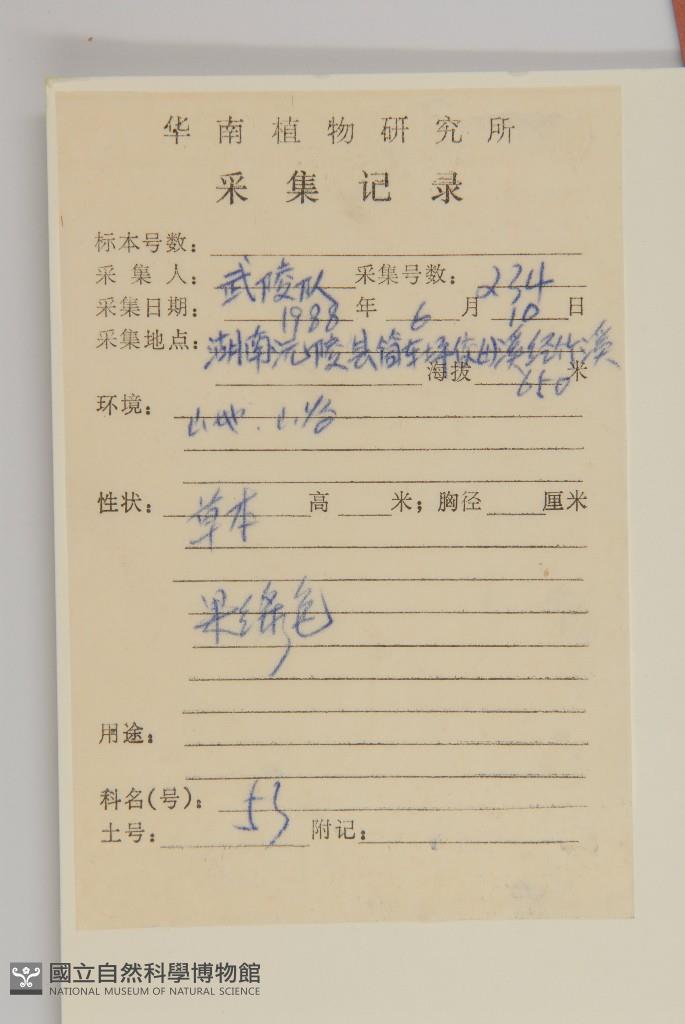 华南植物研究所
采集记录
标本号数：
采集人：武陵队 采集号数：234
采集日期：1988年6月10日
采集地点：湖南沅陵县筒车坪
海拔650米
环境：山地．山谷
性状：草本 高 米；胸径 厘米
果绿色
用途：
科名(号)：53
土号： 附记：
國立自然科學博物館
NATIONAL MUSEUM OF NATURAL SCIENCE